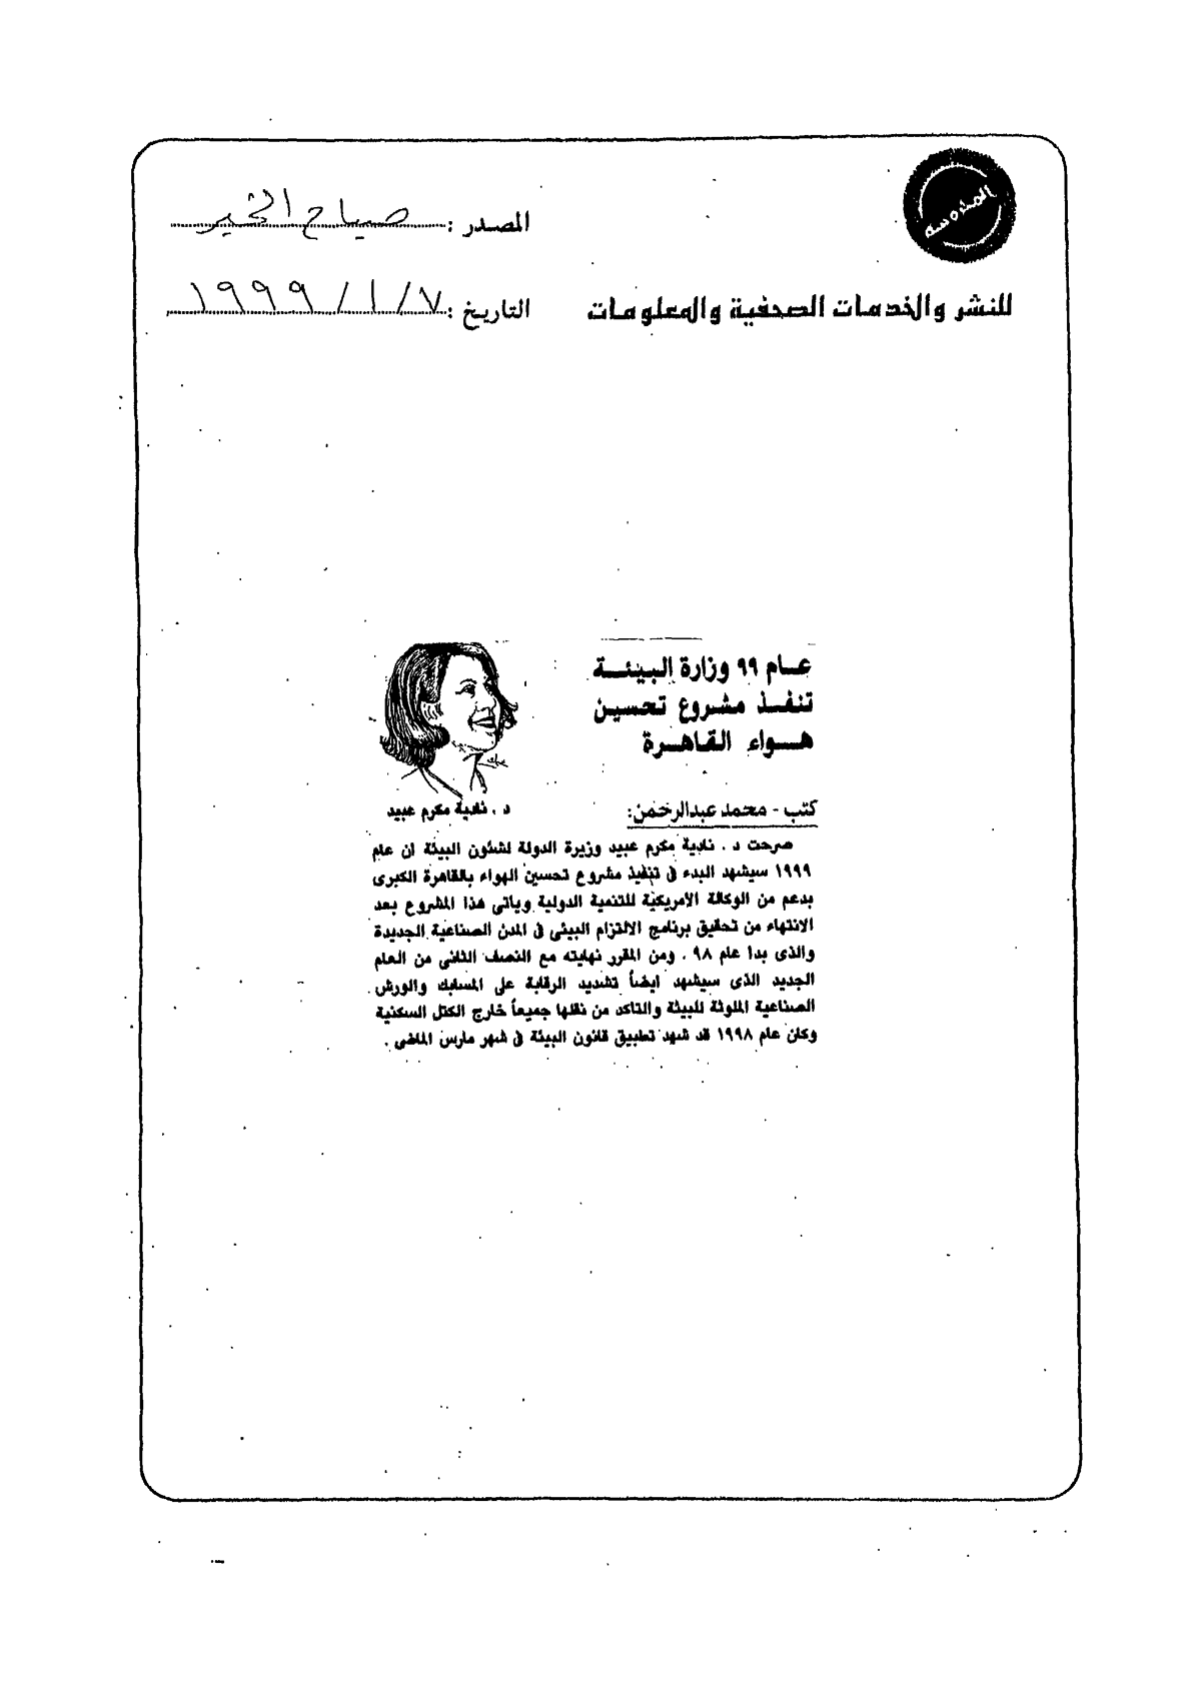 المحروسة
المصدر : صباح الخير
للنشر والخدمات الصحفية والمعلومات
التاريخ : ٧ / ١ / ١٩٩٩
عام ٩٩ وزارة البيئة
تنفذ مشروع تحسين
هواء القاهرة
د . نادية مكرم عبيد
كتب - محمد عبدالرحمن:
صرحت د . نادية مكرم عبيد وزيرة الدولة لشئون البيئة ان عام
١٩٩٩ سيشهد البدء فى تنفيذ مشروع تحسين الهواء بالقاهرة الكبرى
بدعم من الوكالة الأمريكية للتنمية الدولية وياتى هذا المشروع بعد
الانتهاء من تحقيق برنامج الالتزام البيئى فى المدن الصناعية الجديدة
والذى بدا عام ٩٨ . ومن المقرر نهايته مع النصف الثانى من العام
الجديد الذى سيشهد ايضاً تشديد الرقابة على المسابك والورش
الصناعية الملوثة للبيئة والتاكد من نقلها جميعاً خارج الكتل السكنية
وكان عام ١٩٩٨ قد شهد تطبيق قانون البيئة فى شهر مارس الماضى .